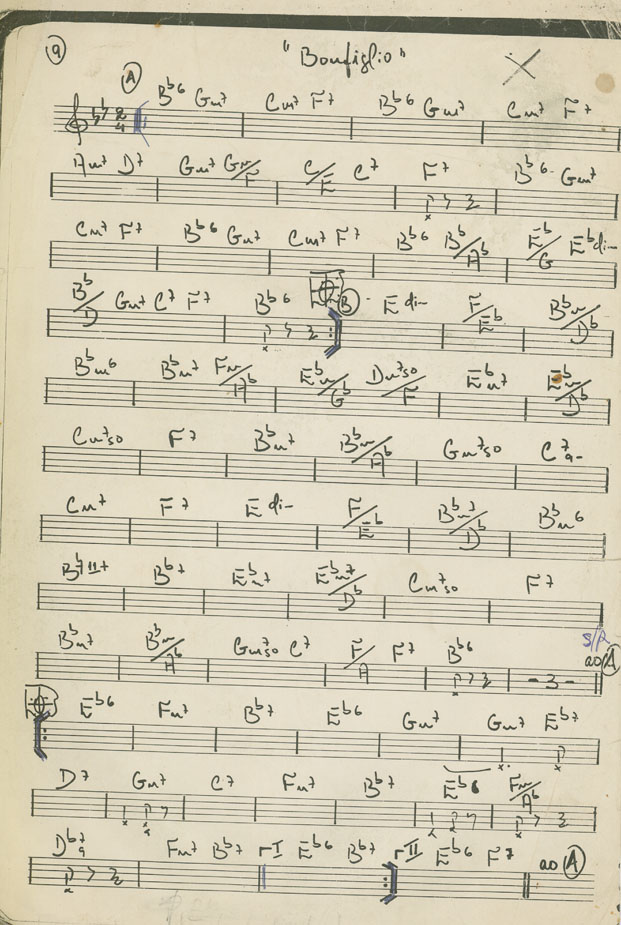 9 "Bonfiglio"
A
2/4 Bb6 Gm7 Cm7 F7 Bb6 Gm7 Cm7 F7
Am7 D7 Gm7 Gm/F C/E C7 F7 Bb6 Gm7
Cm7 F7 Bb6 Gm7 Cm7 F7 Bb6 Bb/Ab Eb/G Ebdi-
Bb/D Gm7 C7 F7 Bb6 B E di- F/Eb Bbm/Db
Bbm6 Bbm7 Fm/Ab Ebm/Gb Dm7 5o/F Ebm7 Ebm/Db
Cm7 5o F7 Bbm7 Bbm/Ab Gm7 5o C7 9-
Cm7 F7 E di- F/Eb Bbm7/Db Bbm6
Bb7 11+ Bb7 Ebm7 Ebm7/Db Cm7 5o F7
Bbm7 Bbm/Ab Gm7 5o C7 F/A F7 Bb6 -3- S/R ao A
Eb6 Fm7 Bb7 Eb6 Gm7 Gm7 Eb7
D7 Gm7 C7 Fm7 Bb7 Eb6 Fm/Ab
Db7 9 Fm7 Bb7 I Eb6 Bb7 II Eb6 F7 ao A